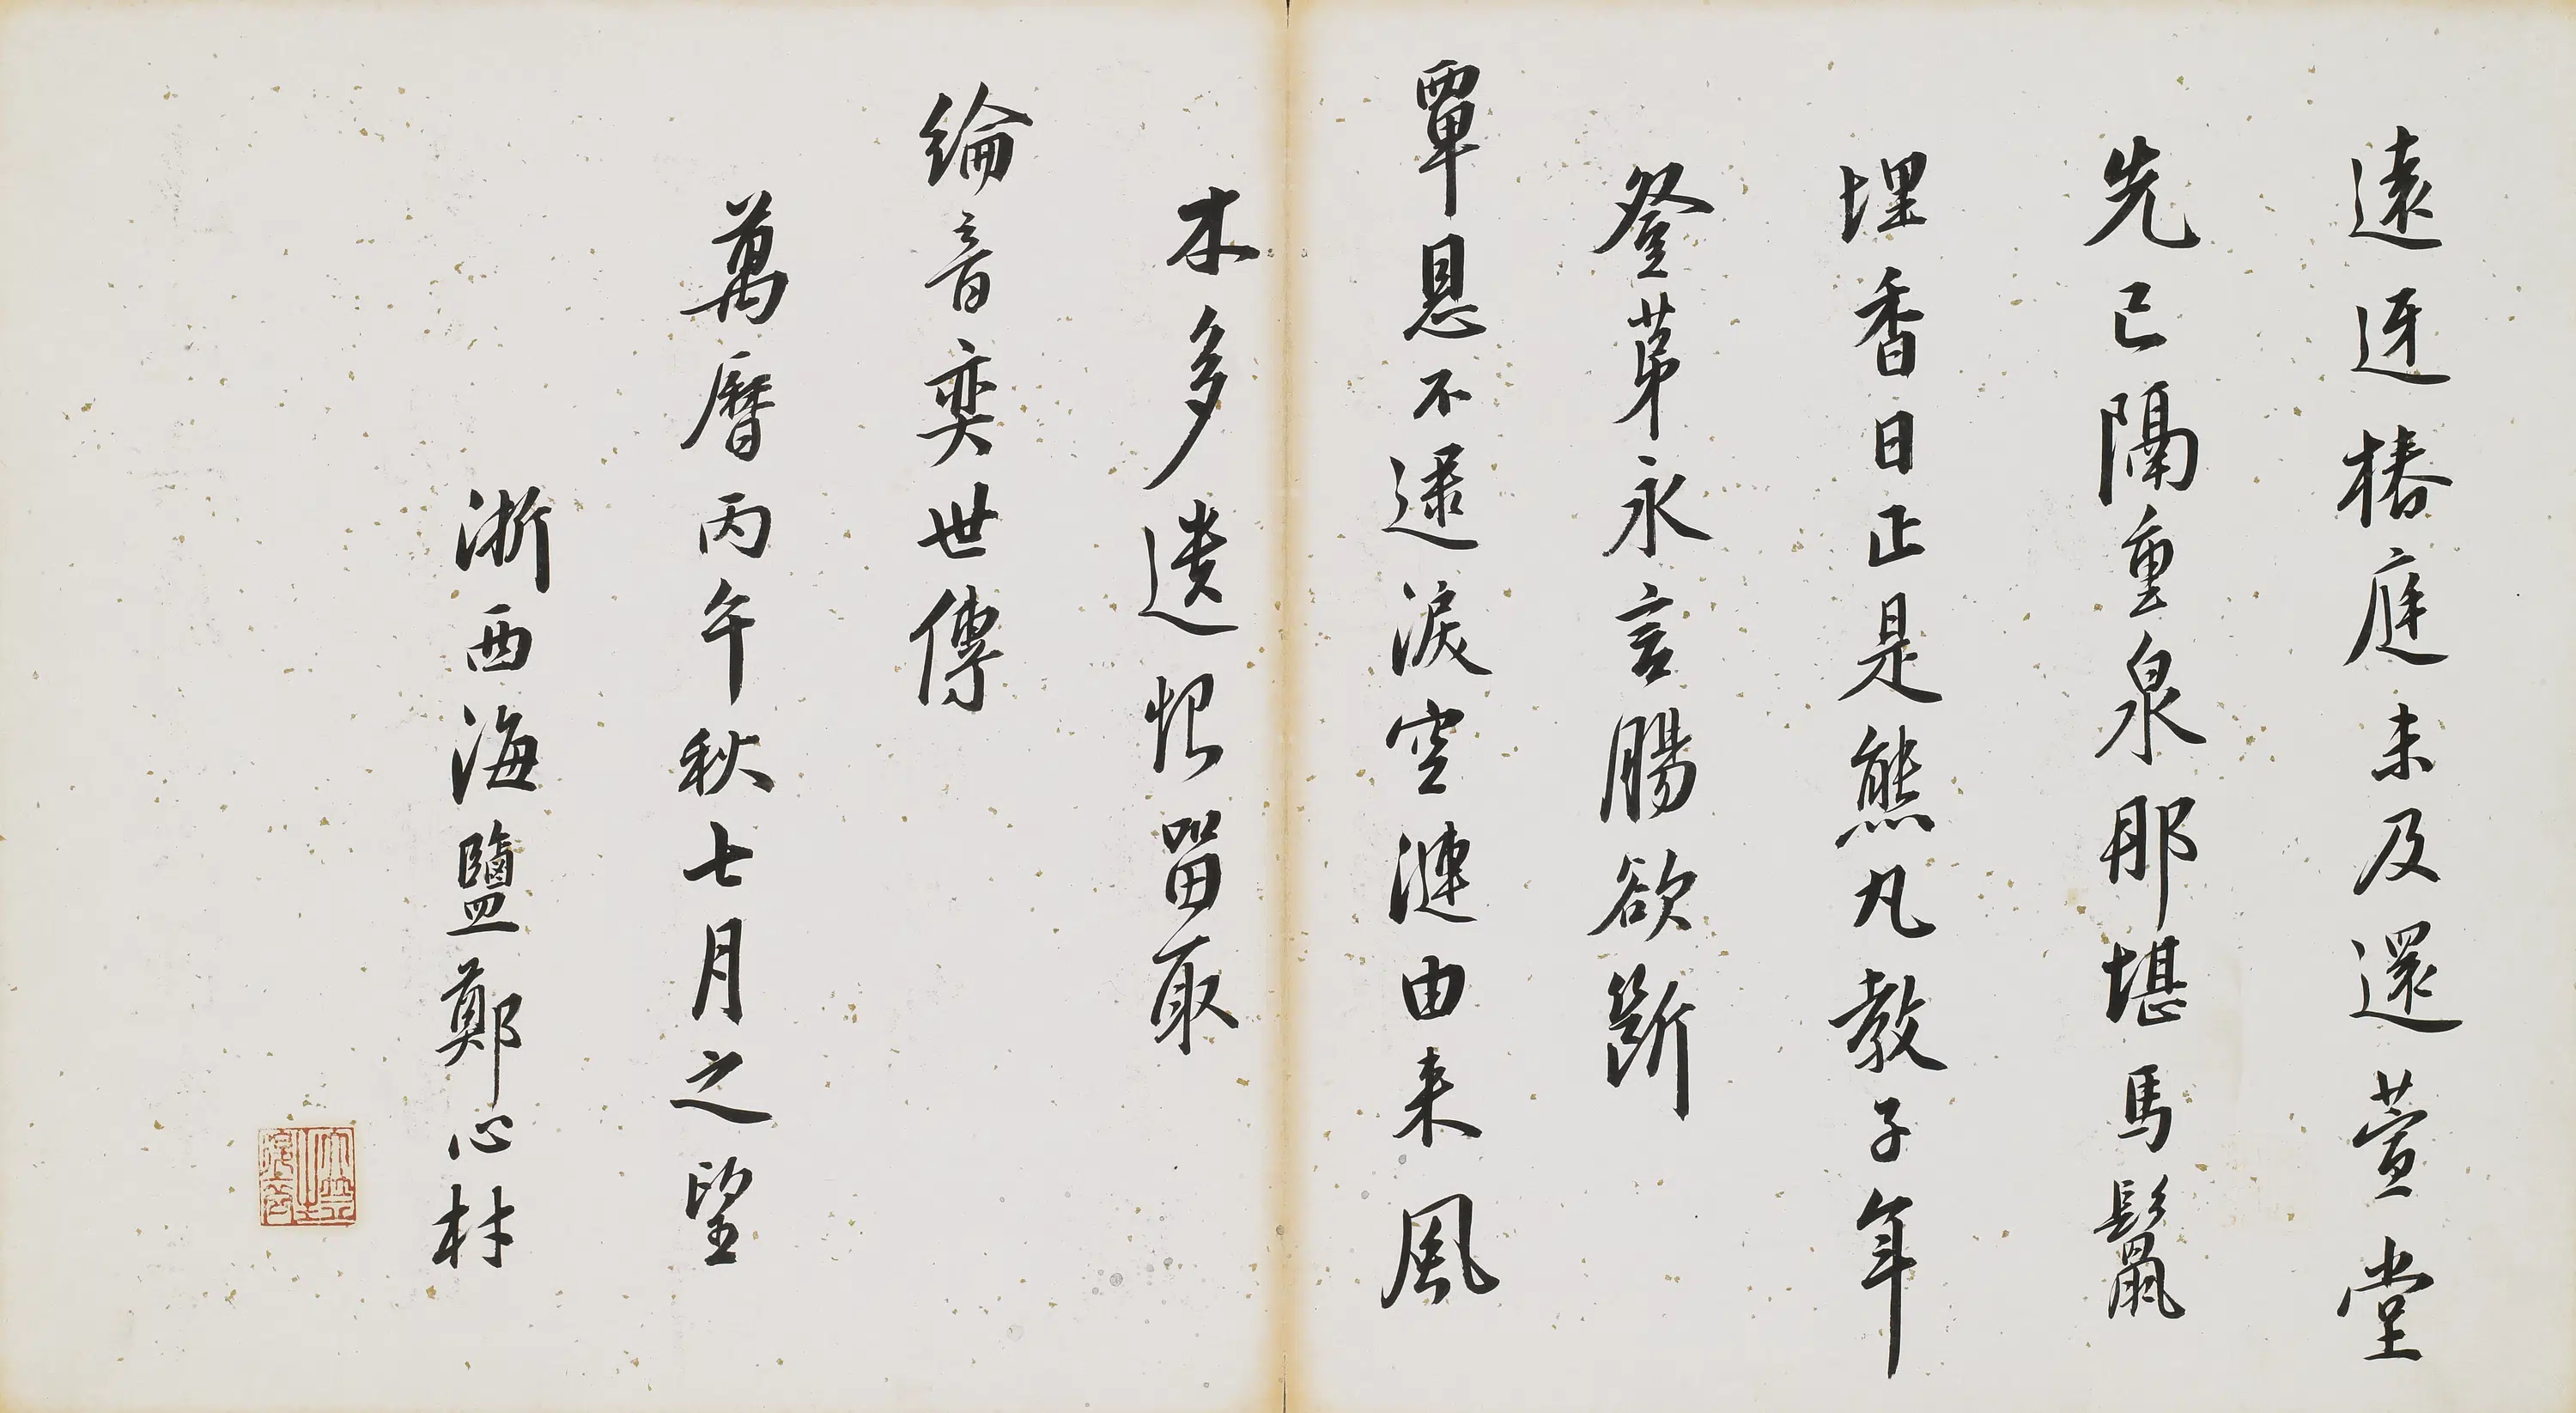 遠迓椿庭未及還萱堂
先已隔重泉那堪馬鬣
埋香日正是熊丸教子年
登苐永言腸欲斷
覃恩不逮淚空漣由来風
木多遺恨留取
綸音奕世傳
萬曆丙午秋七月之望
浙西海鹽鄭心材